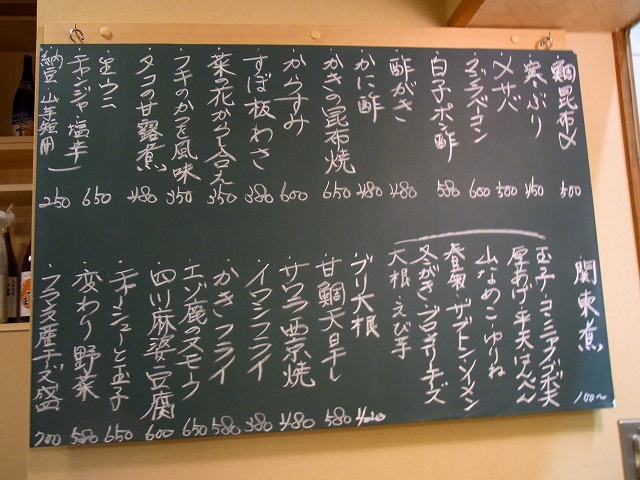 鯛昆布〆 500
寒ぶり 450
〆サバ 500
クジラベーコン 600
白子ポン酢 580
酢がき 480
かに酢 480
かきの昆布焼 650
からすみ 600
すぼ板わさ 380
菜の花からし合え 350
フキのかつを風味 350
タコの甘露煮 480
生ウニ
チャンジャ・塩辛 650
納豆・山芋短冊 250
関東煮 100〜
玉子・コンニャク・ゴボ天
厚あげ・平天・はんぺん
山なめこ・ゆりね
春菊・ザブトン・ソーメン
冬がき・ブロッコリーチーズ
大根・えび子
ブリ大根
甘鯛天日干し 580
サワラ西京焼 480
イワシフライ 380
かきフライ 580
エゾ鹿のスモーク 650
四川麻婆豆腐 600
チャーシューと玉子 650
変わり野菜 580
フランス産チーズ盛 700